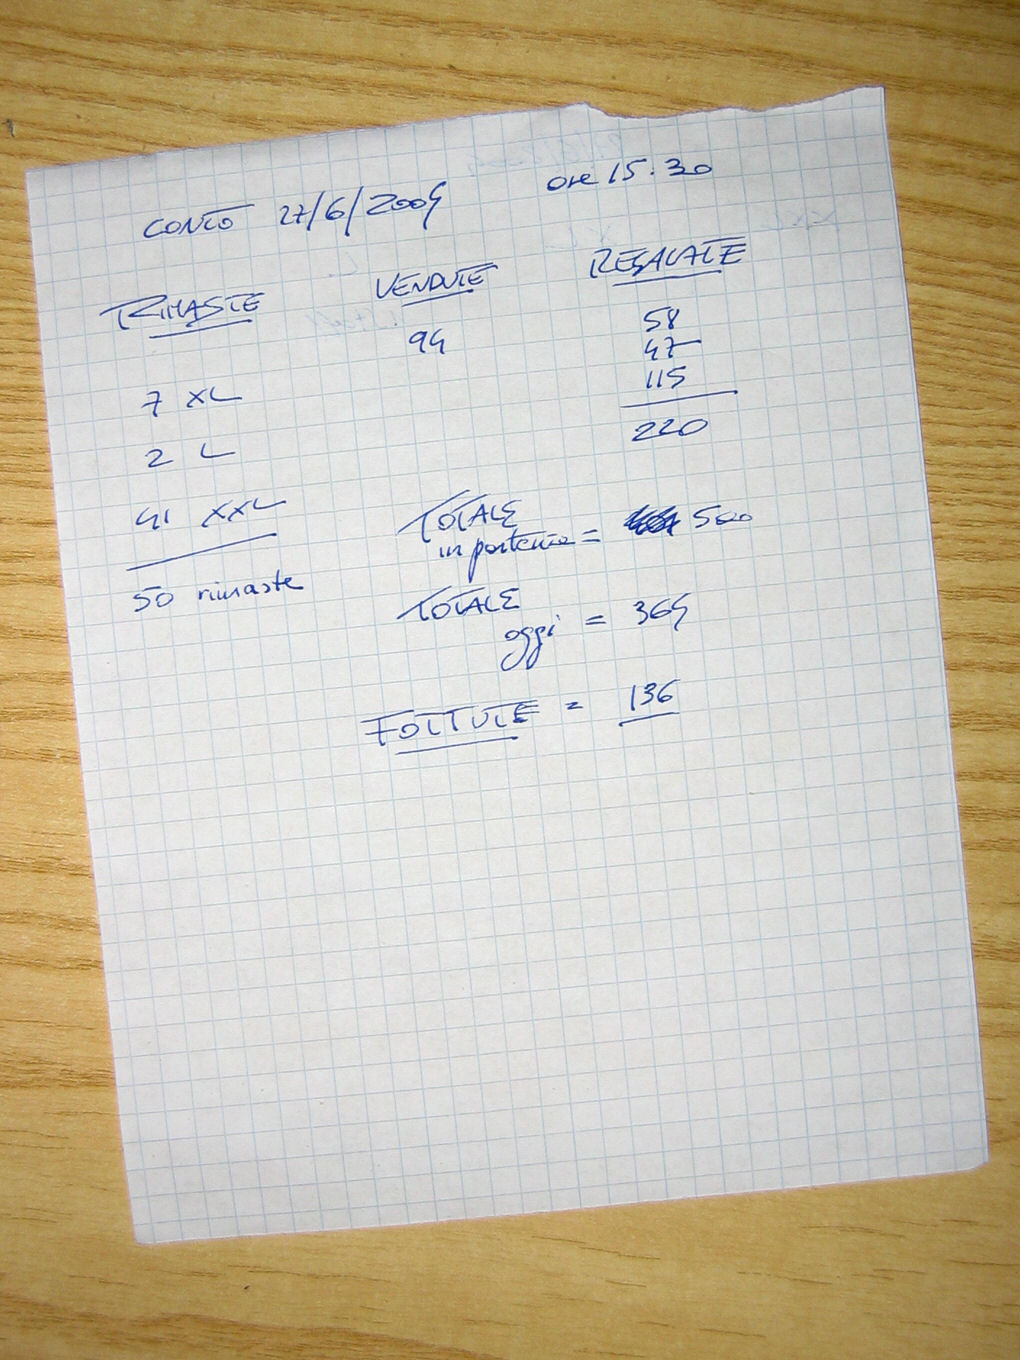 CONTO 27/6/2004 ore 15.30
RIMASTE
7 XL
2 L
41 XXL
50 rimaste
VENDUTE
94
REGALATE
58
47
115
220
TOTALE
in partenza = 500
TOTALE
oggi = 364
FOTTUTE = 136